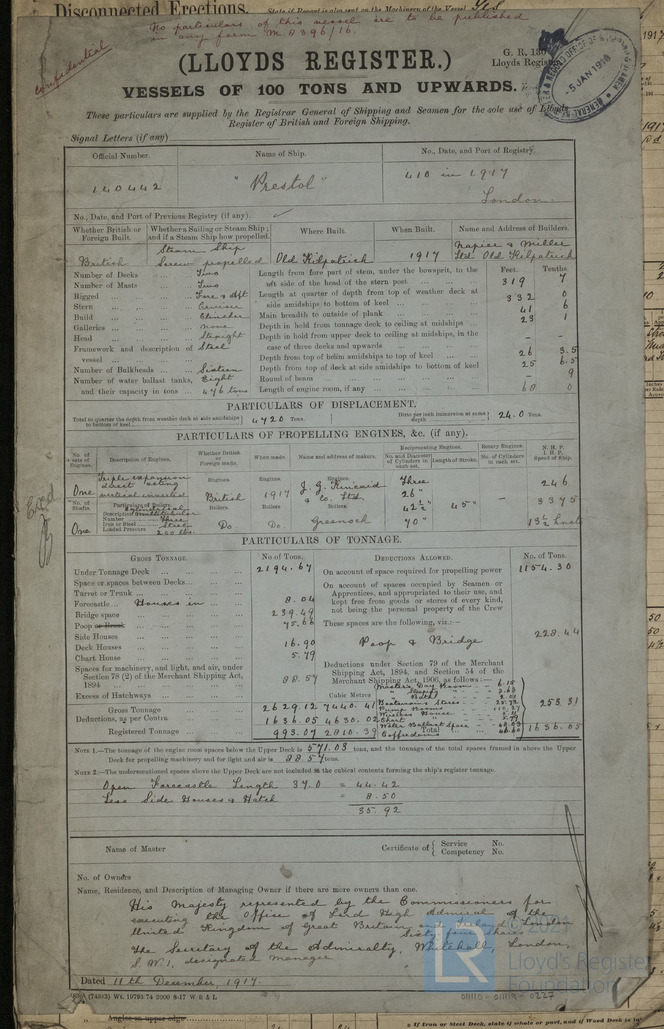 Disconnected Erections. State if Report is also sent on the Machinery of the Vessel
No particulars of this vessel are to be published
in any form M.0396/16.
confidential
(LLOYDS REGISTER.)
G. R. 130
Lloyds Register
5 JAN 1918
VESSELS OF 100 TONS AND UPWARDS.
These particulars are supplied by the Registrar General of Shipping and Seamen for the sole use of Lloyds
Register of British and Foreign Shipping.
Signal Letters (if any)
Official Number. Name of Ship. No., Date, and Port of Registry.
140442 "Prestol" 410 in 1917
London
No., Date, and Port of Previous Registry (if any).
Whether British or Foreign Built. Whether a Sailing or Steam Ship; and if a Steam Ship how propelled. Where Built. When Built. Name and Address of Builders.
British Steam Ship Screw propelled Old Kilpatrick 1917 Napier & Miller Ltd Old Kilpatrick
Feet. Tenths.
Number of Decks Two Length from fore part of stem, under the bowsprit, to the aft side of the head of the stern post 319 7
Number of Masts Two
Rigged Fore & Aft Length at quarter of depth from top of weather deck at side amidships to bottom of keel 332 0
Stern Cruiser Main breadth to outside of plank 41 6
Build Clincher Depth in hold from tonnage deck to ceiling at midships 23 1
Galleries none
Head Straight Depth in hold from upper deck to ceiling at midships, in the case of three decks and upwards – –
Framework and description of vessel Steel Depth from top of beam amidships to top of keel 26 3.5
Number of Bulkheads Sixteen Depth from top of deck at side amidships to bottom of keel 25 6.5
Number of water ballast tanks, Eight Round of beam – 9
and their capacity in tons 476 tons Length of engine room, if any 68 0
PARTICULARS OF DISPLACEMENT.
Total to quarter the depth from weather deck at side amidships to bottom of keel 4720 Tons. Ditto per inch immersion at same depth 24.0 Tons.
PARTICULARS OF PROPELLING ENGINES, &c. (if any).
No. of sets of Engines. Description of Engines. Whether British or Foreign made. When made. Name and address of makers. Reciprocating Engines. No. and Diameter of Cylinders in each set. Length of Stroke. Rotary Engines. No. of Cylinders in each set. N.H.P. I.H.P. Speed of Ship.
One Triple expansion direct acting vertical inverted Engines. British Engines. 1917 Engines. J. G. Kincaid & Co. Ltd. Three 26" 42½" 70" 45" – 246
3375
No. of Shafts. Particulars of Boilers. Boilers. Boilers. Boilers.
One Description Number Three Iron or Steel Steel Loaded Pressure 200 lbs. Do. Do. Greenock 13½ knots
PARTICULARS OF TONNAGE.
GROSS TONNAGE. No. of Tons. DEDUCTIONS ALLOWED. No. of Tons.
Under Tonnage Deck 2194.67 On account of space required for propelling power 1154.30
Space or spaces between Decks On account of spaces occupied by Seamen or
Turret or Trunk Apprentices, and appropriated to their use, and
Forecastle Houses in 8.04 kept free from goods or stores of every kind,
Bridge space 239.49 not being the personal property of the Crew
Poop or Break 75.66 These spaces are the following, viz.:—
Side Houses Poop & Bridge 228.44
Deck Houses 16.90
Chart House 5.79
Spaces for machinery, and light, and air, under Section 78 (2) of the Merchant Shipping Act, 1894 88.57 Deductions under Section 79 of the Merchant Shipping Act, 1894, and Section 54 of the Merchant Shipping Act, 1906, as follows:—
Excess of Hatchways Cubic Metres
Gross Tonnage 2629.12 7440.41
Deductions, as per Contra 1636.05 4630.02 253.31
Registered Tonnage 993.07 2810.39 Total 1636.05
NOTE 1.—The tonnage of the engine room spaces below the Upper Deck is 571.03 tons, and the tonnage of the total spaces framed in above the Upper
Deck for propelling machinery and for light and air is 88.57 tons.
NOTE 2.—The undermentioned spaces above the Upper Deck are not included in the cubical contents forming the ship's register tonnage.
Open Forecastle Length 37.0 = 44.42
Less Side Houses & Hatch = 8.50
35.92
Name of Master Certificate of { Service No.
Competency No.
No. of Owners
Name, Residence, and Description of Managing Owner if there are more owners than one.
His Majesty represented by the Commissioners for
executing the Office of Lord High Admiral of the
United Kingdom of Great Britain and Ireland London
Sixty four shares
The Secretary of the Admiralty, Whitehall, London,
S.W.1, designated manager
Dated 11th December, 1917.
Lloyd's Register
Foundation
Angles on upper edge
If Iron or Steel Deck, state if whole or part, and if Wood Deck